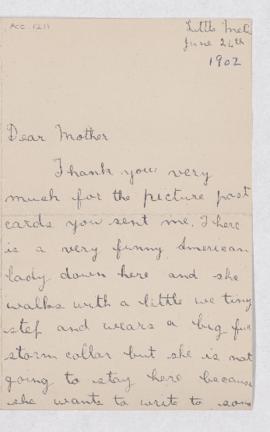 Acc. 1211
Little Metis
June 24th
1902
Dear Mother
Thank you very
much for the picture post
cards you sent me. There
is a very funny American
lady down here and she
walks with a little we tiny
step and wears a bug fur
storm collar but she is not
going to stay here because
she wants to write to some